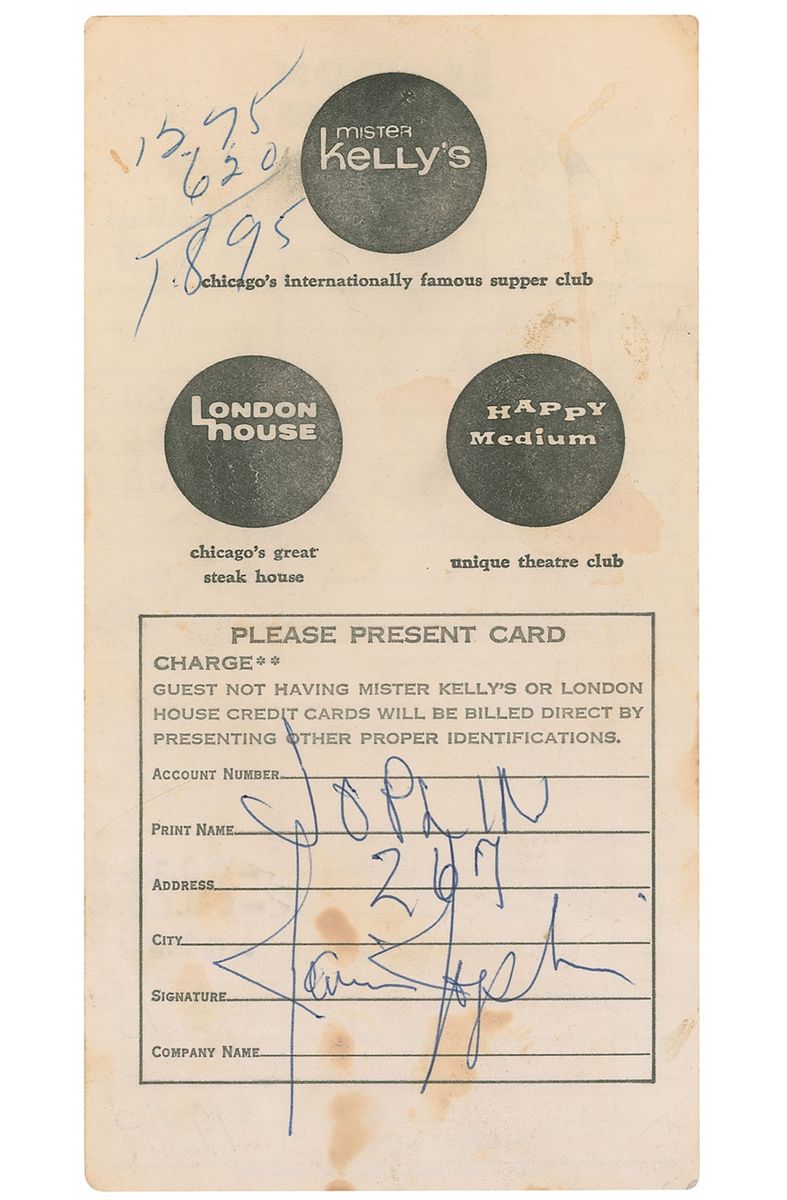 12.75
6.20
18.95
MISTER
KELLY'S
chicago's internationally famous supper club
LONDON
HOUSE
HAPPY
Medium
chicago's great
steak house
unique theatre club
PLEASE PRESENT CARD
CHARGE**
GUEST NOT HAVING MISTER KELLY'S OR LONDON
HOUSE CREDIT CARDS WILL BE BILLED DIRECT BY
PRESENTING OTHER PROPER IDENTIFICATIONS.
ACCOUNT NUMBER
PRINT NAME JOPLIN
ADDRESS 267
CITY
SIGNATURE Janis Joplin
COMPANY NAME